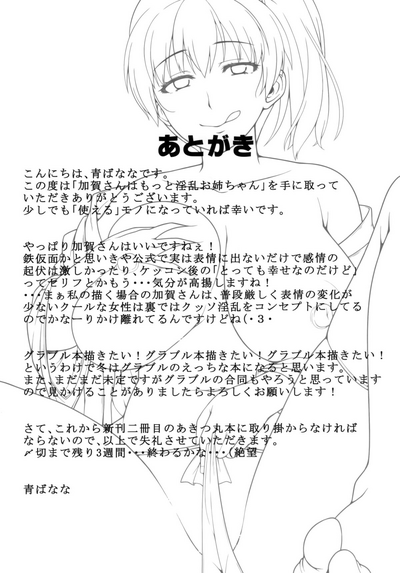 あとがき
こんにちは、青ばななです。
この度は「加賀さんはもっと淫乱お姉ちゃん」を手に取って
いただきありがとうございます。
少しでも「使える」モノになっていれば幸いです。
やっぱり加賀さんはいいですねぇ！
鉄仮面かと思いきや公式で実は表情に出ないだけで感情の
起伏は激しかったり、ケッコン後の「とっても幸せなのだけど」
ってセリフとかもう・・・気分が高揚しますね！
・・・まぁ私の描く場合の加賀さんは、普段厳しく表情の変化が
少ないクールな女性は裏ではクッソ淫乱をコンセプトにしてる
のでかなーりかけ離れてるんですけどね(・3・
グラブル本描きたい！グラブル本描きたい！グラブル本描きたい！
というわけで冬はグラブルのえっちな本になると思います。
また、まだまだ未定ですがグラブルの合同もやろうと思っています
ので見かけることがありましたらよろしくお願いします！
さて、これから新刊二冊目のあきつ丸本に取り掛からなければ
ならないので、以上で失礼させていただきます。
〆切まで残り3週間・・・終わるかな・・・(絶望
青ばなな